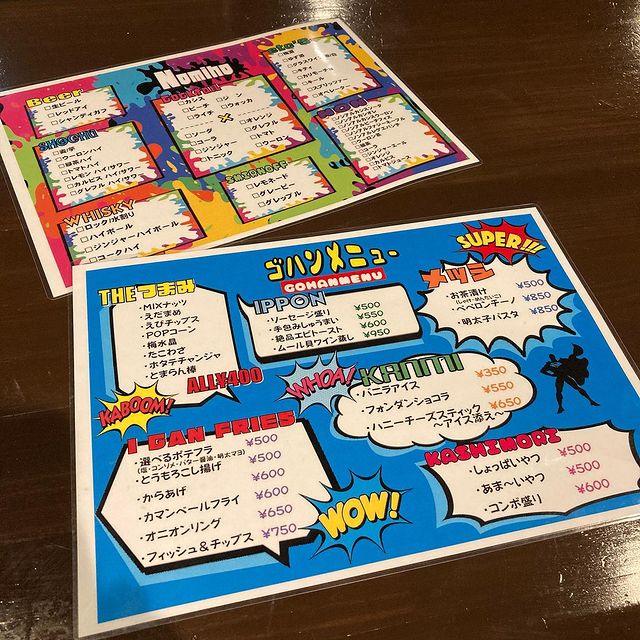 Nominy
Beer
□生ビール
□レッドアイ
□シャンディガフ
SHOCHU
□ウーロンハイ
□緑茶ハイ
□トマトハイ
□レモン ハイ/サワー
□カルピス ハイ/サワー
□グレフル ハイ/サワー
WHISKY
□ロック/水割り
□ハイボール
□ジンジャーハイボール
□コークハイ
Cocktail
□カシス
□ピーチ
□ライチ
□ジン
□ウォッカ
×
□ソーダ
□コーラ
□ジンジャー
□トニック
□オレンジ
□グレフル
□トマト
□ウーロン
□レモネード
□グレーピー
□グレップル
□ゆず酒
□キティ
□カリモーチョ
□キール
□スプリッツァー
□オペレーター
□ジンジャーエール
□オレンジ
□カルピス
□トマトジュース
ゴハンメニュー
GOHANMENU
SUPER!!!
THEつまみ
・MIXナッツ
・えだまめ
・えびチップス
・POPコーン
・梅水晶
・たこわさ
・ホタテチャンジャ
・とまらん棒
ALL¥400
KABOOM!
IPPON
・ソーセージ盛り ¥500
・手包みしゅうまい ¥550
・絶品エビトースト ¥600
・ムール貝ワイン蒸し ¥950
メッシ
・お茶漬け ¥500
(しゃけ・めんたいこ)
・ペペロンチーノ ¥850
・明太子パスタ ¥850
WHOA!
KANMI
・バニラアイス ¥350
・フォンダンショコラ ¥550
・ハニーチーズスティック ¥650
～アイス添え～
I CAN FRIES
・選べるポテフラ ¥500
(塩・コンソメ・バター醤油・明太マヨ)
・とうもろこし揚げ ¥500
・からあげ ¥600
・カマンベールフライ ¥600
・オニオンリング ¥650
・フィッシュ&チップス ¥750
WOW!
KASHIMORI
・しょっぱいやつ ¥500
・あま～いやつ ¥500
・コンボ盛り ¥600